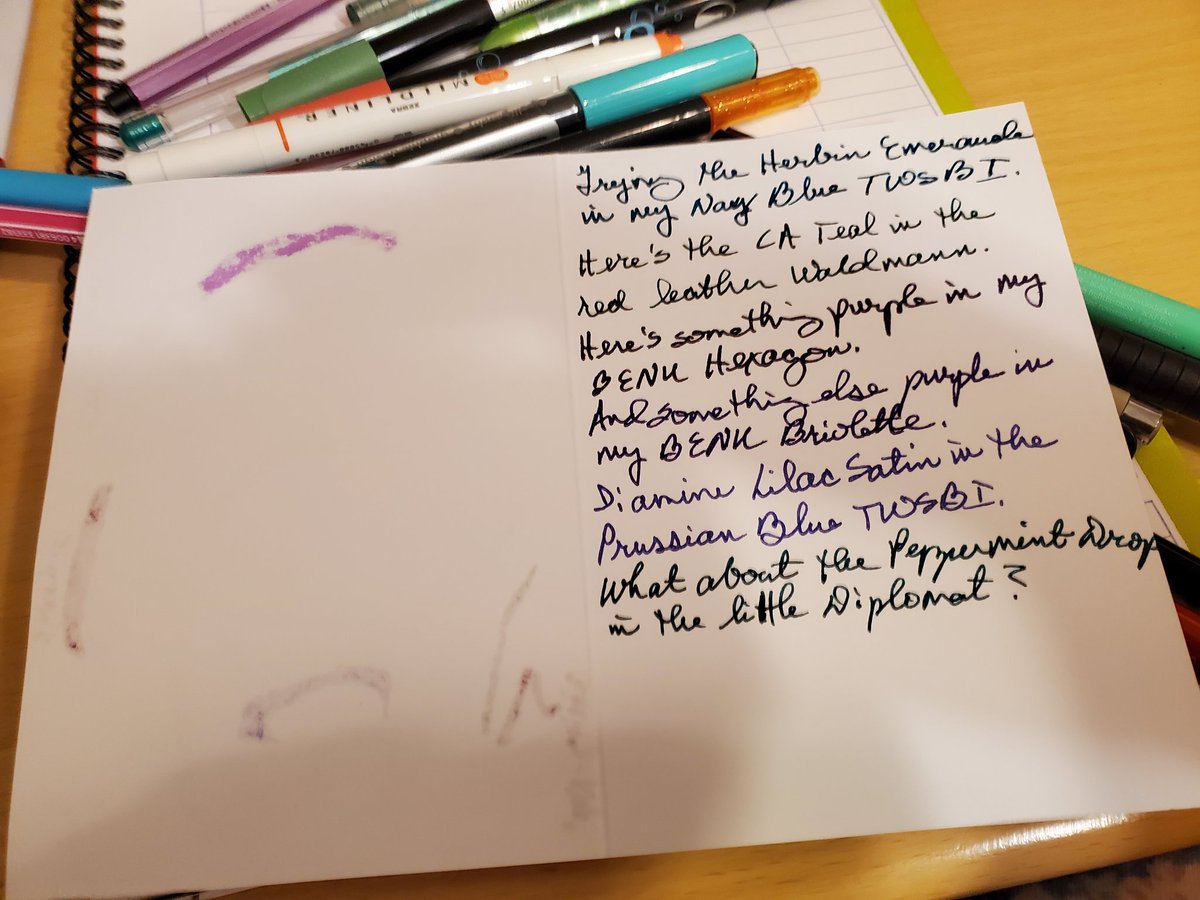 ZEBRA
MILDLINER
Trying the Herbin Emeraude
in my Navy Blue TWSBI.
Here's the CA Teal in the
red leather Waldmann.
Here's something purple in my
BENU Hexagon.
And something else purple in
my BENU Briolette.
Diamine Lilac Satin in the
Prussian Blue TWSBI.
What about the Peppermint Drop
in the little Diplomat?